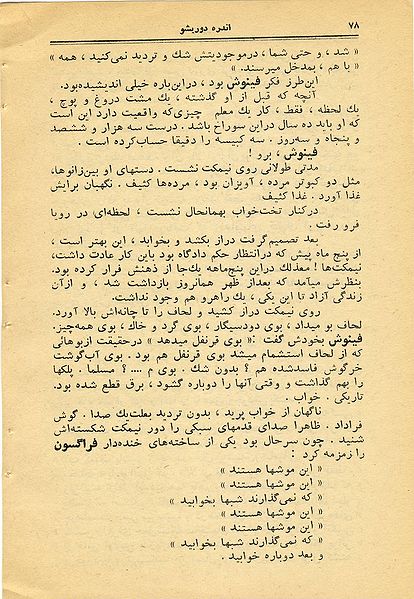 ۷۸
اندره دوریشو
« شد ، و حتی شما ، درموجودیتش شك و تردید نمی‌کنید ، همه »
« با هم ، بمدخل میرسند. »
این‌طرز فکر فینوش بود ، در این‌باره خیلی اندیشیده‌بود.
آنچه که قبل از او گذشته ، یك مشت دروغ و پوچ ،
یك لحظه ، فقط ، کار یك معلم چیزی‌که واقعیت دارد این است
که او باید ده سال دراین سوراخ باشد . درست سه هزار و ششصد
و پنجاه و سه‌روز . سه کبیسه را دقیقا حساب‌کرده است .
فینوش ، برو !
مدتی طولانی روی نیمکت نشست . دستهای او بین‌زانوها،
مثل دو کبوتر مرده ، آویزان بود ، مرده‌ها کثیف . نگهبان برایش
غذا آورد . غذا کثیف
درکنار تخت‌خواب بهمانحال نشست ، لحظه‌ای در رویا
فرو رفت .
بعد تصمیم‌گرفت دراز بکشد و بخوابد ، این بهتر است ،
از پنج ماه پیش که درانتظار حکم دادگاه بود باین کار عادت داشت،
نیمکت‌ها ! معذلك دراین پنج‌ماهه یك‌جا از ذهنش فرار کرده بود.
بنظرش میآمد که بعداز ظهر همانروز بازداشت شد ، و ازآن
زندگی آزاد تا این یکی ، یك راهرو هم وجود نداشت.
روی نیمکت دراز کشید و لحاف را تا چانه‌اش بالا آورد.
لحاف بو میداد ، بوی دودسیگار ، بوی گرد و خاك ، بوی همه‌چیز.
فینوش بخودش گفت :« بوی قرنفل میدهد » درحقیقت ازبوهائی
که از لحاف استشمام میشد بوی قرنفل هم بود . بوی آب‌گوشت
خرگوش فاسدشده هم ؟ بدون شك . بوی م .... ؟ مسلما . پلکها
را بهم گذاشت و وقتی آنها را دوباره گشود ، برق قطع شده بود.
تاریکی . خواب .
ناگهان از خواب پرید ، بدون تردید بعلت‌یك صدا . گوش
فراداد . ظاهرا صدای قدمهای سبکی را دور نیمکت شکسته‌اش
شنید . چون سرحال بود یکی از ساخته‌های خنده‌دار فراگسون
را زمزمه کرد :
« این موشها هستند »
« این موشها هستند »
« که نمی‌گذارند شبها بخوابید »
« این موشها هستند »
« این موشها هستند »
« که نمی‌گذارند شبها بخوابید »
و بعد دوباره خوابید .